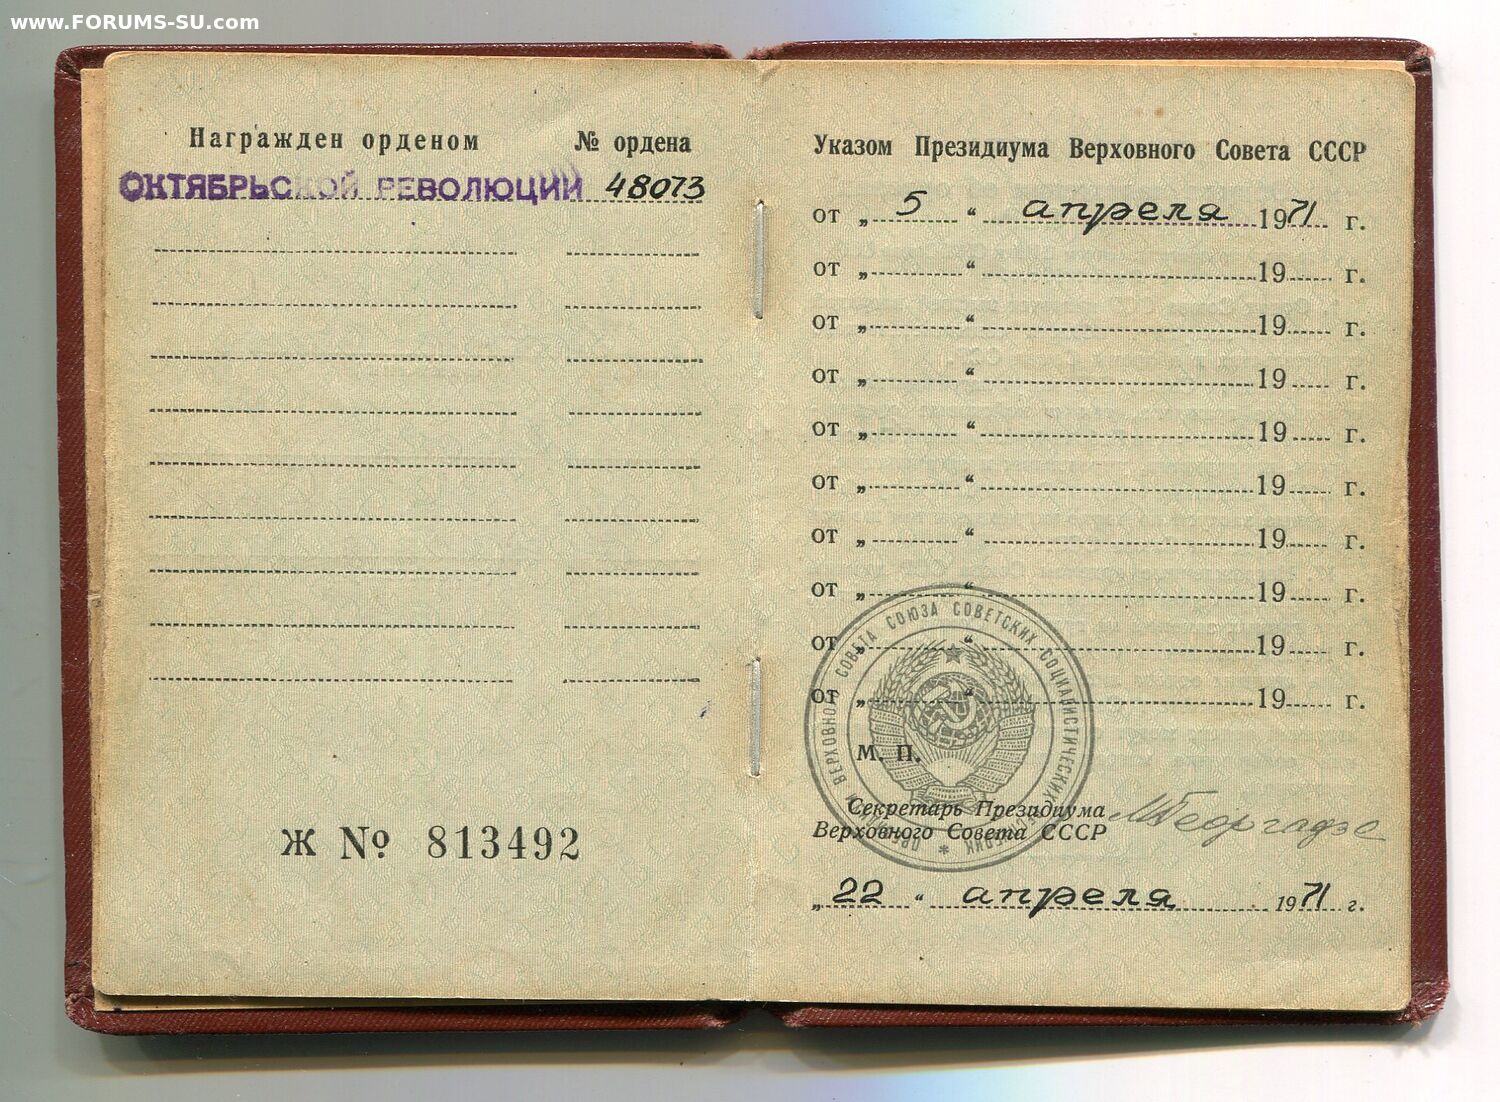 www.FORUMS-SU.com
Награжден орденом
№ ордена
ОКТЯБРЬСКОЙ РЕВОЛЮЦИИ 48073
Ж № 813492
Указом Президиума Верховного Совета СССР
от „ 5 “ апреля 1971 г.
от „ “ 19 г.
от „ “ 19 г.
от „ “ 19 г.
от „ “ 19 г.
от „ “ 19 г.
от „ “ 19 г.
от „ “ 19 г.
от „ “ 19 г.
от „ “ 19 г.
М. П.
ВЕРХОВНОГО СОВЕТА СОЮЗА СОВЕТСКИХ СОЦИАЛИСТИЧЕСКИХ
Секретарь Президиума
Верховного Совета СССР
МГеоргадзе
„ 22 “ апреля 1971 г.